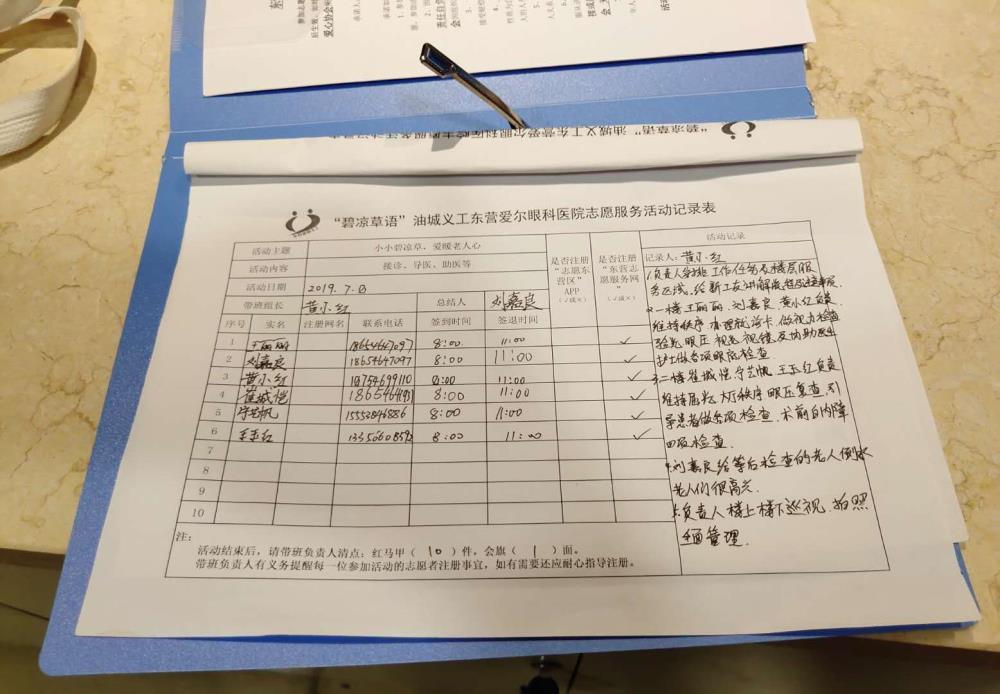 “碧凉草语”油城义工东营爱尔眼科医院志愿服务活动记录表
活动主题 小小碧凉草，爱暖老人心
活动内容 接诊、导医、助医等
活动日期 2019.7.
带班组长 黄小红 总结人 刘嘉良
是否注册“志愿东营区”APP（√或×）
是否注册“东营志愿服务网”（√或×）
序号 实名 注册网名 联系电话 签到时间 签退时间
1 王丽丽 18654647097 8:00 11:00 ✓
2 刘嘉良 18654647097 8:00 11:00 ✓
3 黄小红 18754699110 8:00 11:00 ✓
4 崔城恺 8:00 11:00 ✓
5 宁艺帆 15553846886 8:00 11:00 ✓
6 王玉红 8:00 11:00 ✓
7
8
9
10
注：
活动结束后，请带班负责人清点：红马甲（10）件，会旗（1）面。
带班负责人有义务提醒每一位参加活动的志愿者注册事宜，如有需要还应耐心指导注册。
活动记录
记录人：黄小红
1.负责人安排工作任务及楼层服
务区域，给新工友讲解
2.一楼王丽丽、刘嘉良、黄小红负责
维持秩序 办理就诊卡、做视力检查
验光 眼压 视力 及协助医生
护士做各项眼底检查.
3.二楼崔城恺 宁艺帆 王玉红负责
维持 大厅秩序 眼压复查 引
导患者做各项检查、术前白内障
四项检查.
4.刘嘉良给等后检查的老人倒水
老人们很高兴.
5.负责人楼上楼下巡视、拍照
管理.